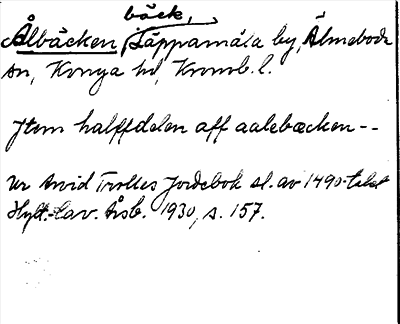 bäck,
Ålbäcken, Täppamåla by, Älmeboda
sn, Konga hd, Kronob. l.
Jtem halffdelen aff aalebæcken--
Ur Arvid Trolles Jordebok sl. av 1490-talet
Hylt.-Cav. Årsb. 1930, s. 157.